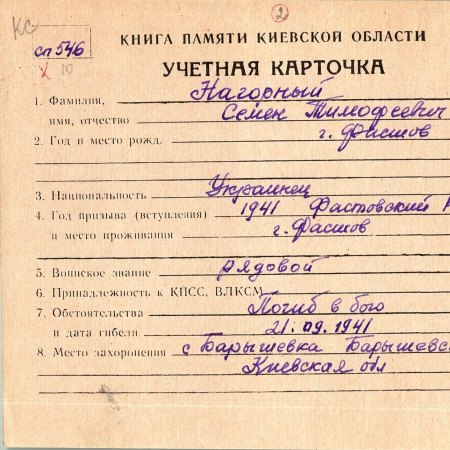 2
КС
сп 546
х 10
КНИГА ПАМЯТИ КИЕВСКОЙ ОБЛАСТИ
УЧЕТНАЯ КАРТОЧКА
1. Фамилия, Нагорный
имя, отчество Семен Тимофеевич
2. Год и место рожд. г. Фастов
3. Национальность Украинец
4. Год призыва (вступления) 1941 Фастовский
и место проживания г. Фастов
5. Воинское звание рядовой
6. Принадлежность к КПСС, ВЛКСМ
7. Обстоятельства Погиб в бою
и дата гибели 21.09.1941
8. Место захоронения с Барышевка Барышевс
Киевская обл